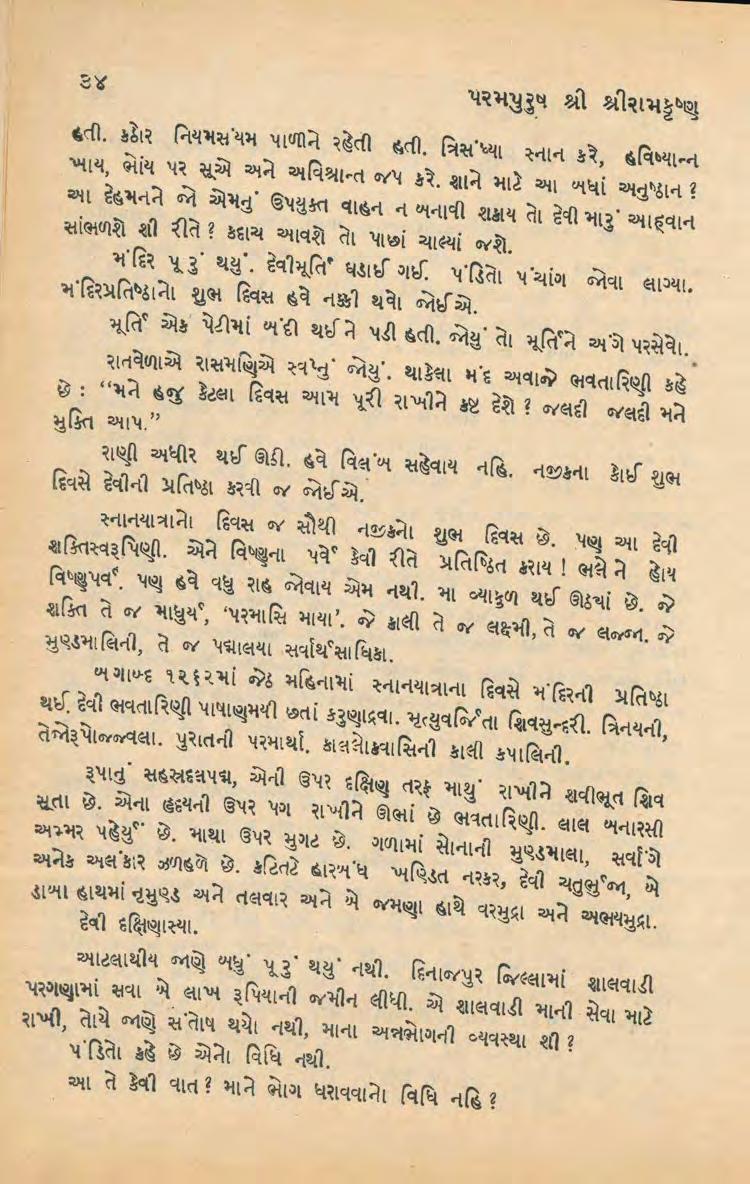 ૩૪
પરમપુરુષ શ્રી શ્રીરામકૃષ્ણ
હતી. કઠોર નિયમસંયમ પાળીને રહેતી હતી. ત્રિસંધ્યા સ્નાન કરે, હવિષ્યાન્ન
ખાય, ભોંય પર સૂએ અને અવિશ્રાન્ત જપ કરે. શાને માટે આ બધાં અનુષ્ઠાન ?
આ દેહમનને જો એમનું ઉપયુક્ત વાહન ન બનાવી શકાય તો દેવી મારું આહ્‌વાન
સાંભળશે શી રીતે ? કદાચ આવશે તો પાછાં ચાલ્યાં જશે.
મંદિર પૂરું થયું. દેવીમૂર્તિ ઘડાઈ ગઈ. પંડિતો પંચાંગ જોવા લાગ્યા.
મંદિરપ્રતિષ્ઠાનો શુભ દિવસ હવે નક્કી થવો જોઈએ.
મૂર્તિ એક પેટીમાં બંદી થઈને પડી હતી. જોયું તો મૂર્તિને અંગે પરસેવો.
રાતવેળાએ રાસમણિએ સ્વપ્નું જોયું. થાકેલા મંદ અવાજે ભવતારિણી કહે
છે : “મને હજુ કેટલા દિવસ આમ પૂરી રાખીને કષ્ટ દેશે ? જલદી જલદી મને
મુક્તિ આપ.”
રાણી અધીર થઈ ઊઠી. હવે વિલંબ સહેવાય નહિ. નજીકના કોઈ શુભ
દિવસે દેવીની પ્રતિષ્ઠા કરવી જ જોઈએ.
સ્નાનયાત્રાનો દિવસ જ સૌથી નજીકનો શુભ દિવસ છે. પણ આ દેવી
શક્તિસ્વરૂપિણી. એને વિષ્ણુના પર્વે કેવી રીતે પ્રતિષ્ઠિત કરાય ! ભલે ને હોય
વિષ્ણુપર્વ. પણ હવે વધુ રાહ જોવાય એમ નથી. મા વ્યાકુળ થઈ ઊઠ્યાં છે. જે
શક્તિ તે જ માધુર્ય, ‘પરમાસિ માયા’. જે કાલી તે જ લક્ષ્મી, તે જ લજ્જા. જે
મુણ્ડમાલિની, તે જ પદ્માલયા સર્વાર્થસાધિકા.
બંગાબ્દ ૧૨૬૨માં જેઠ મહિનામાં સ્નાનયાત્રાના દિવસે મંદિરની પ્રતિષ્ઠા
થઈ. દેવી ભવતારિણી પાષાણમયી છતાં કરુણાદ્રવા. મૃત્યુવર્જિતા શિવસુન્દરી. ત્રિનયની,
તેજોરૂપોજ્જ્વલા. પુરાતની પરમાર્થા. કાલલોકવાસિની કાલી કપાલિની.
રૂપાનું સહસ્રદલપદ્મ, એની ઉપર દક્ષિણ તરફ માથું રાખીને શવીભૂત શિવ
સૂતા છે. એના હૃદયની ઉપર પગ રાખીને ઊભાં છે ભવતારિણી. લાલ બનારસી
અમ્મર પહેર્યું છે. માથા ઉપર મુગટ છે. ગળામાં સોનાની મુણ્ડમાલા, સર્વાંગે
અનેક અલંકાર ઝળહળે છે. કટિતટે હારબંધ ખણ્ડિત નરકર, દેવી ચતુર્ભુજા, બે
ડાબા હાથમાં નૃમુણ્ડ અને તલવાર અને બે જમણા હાથે વરમુદ્રા અને અભયમુદ્રા.
દેવી દક્ષિણાસ્યા.
આટલાથીય જાણે બધું પૂરું થયું નથી. દિનાજપુર જિલ્લામાં શાલવાડી
પરગણામાં સવા બે લાખ રૂપિયાની જમીન લીધી. એ શાલવાડી માની સેવા માટે
રાખી, તોયે જાણે સંતોષ થયો નથી, માના અન્નભોગની વ્યવસ્થા શી ?
પંડિતો કહે છે એનો વિધિ નથી.
આ તે કેવી વાત ? માને ભોગ ધરાવવાનો વિધિ નહિ ?